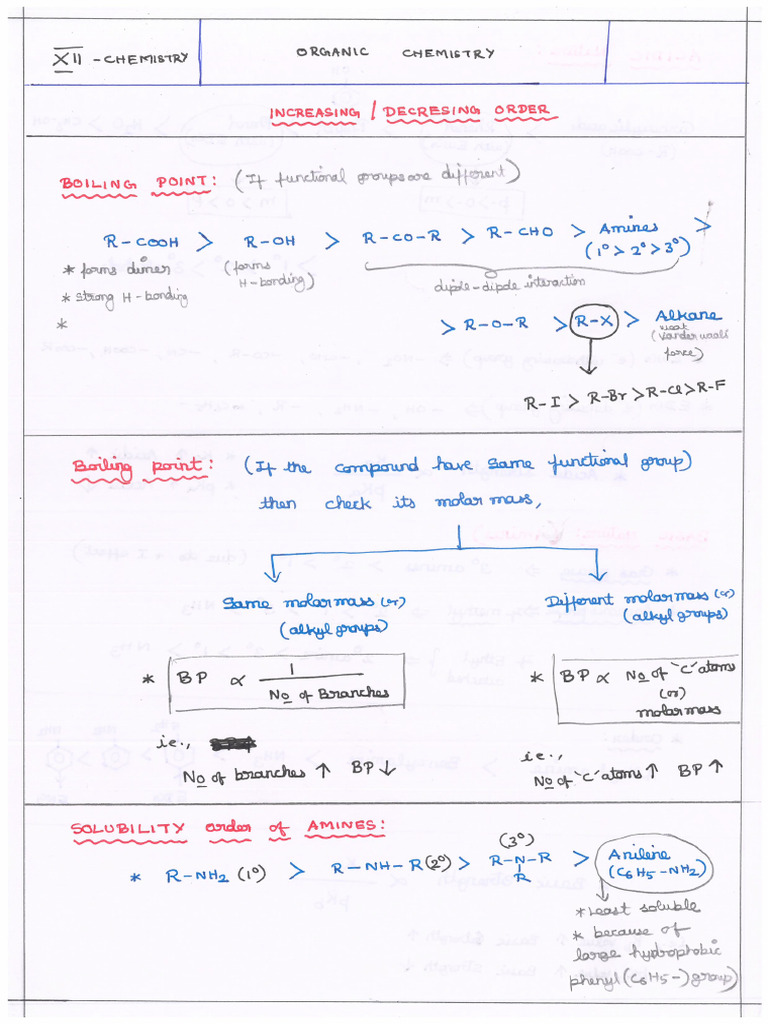 XII - CHEMISTRY
ORGANIC CHEMISTRY
INCREASING / DECRESING ORDER
BOILING POINT: (If functional groups are different)
R-COOH > R-OH > R-CO-R > R-CHO > Amines >
(1° > 2° > 3°)
* forms dimer
(forms H-bonding)
dipole-dipole interaction
* strong H-bonding
*
> R-O-R > R-X > Alkane
weak
(Vander waals
force)
R-I > R-Br > R-Cl > R-F
Boiling point: (If the compound have same functional group)
then check its molar mass,
Same molarmass (or)
(alkyl groups)
Different molarmass (or)
(alkyl groups)
* BP ∝ 1 / No of Branches
* BP ∝ No of 'C' atoms
(or)
molarmass
i.e.,
No of branches ↑ BP ↓
i.e.,
No of 'C' atoms ↑ BP ↑
SOLUBILITY order of AMINES:
(3°)
* R-NH2 (1°) > R-NH-R (2°) > R-N-R > Aniline
R
(C6H5-NH2)
* Least soluble
* because of
large hydrophobic
phenyl (C6H5-) group)